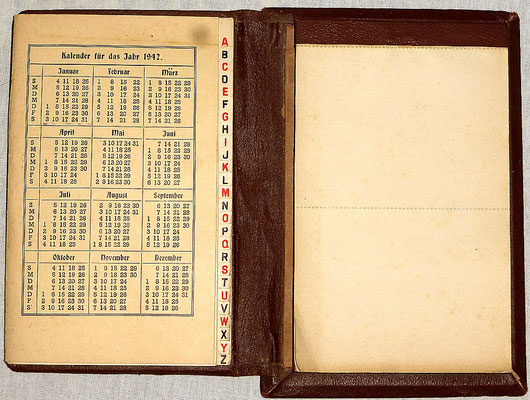 Kalender für das Jahr 1942.
Januar Februar März
S 4 11 18 25 1 8 15 22 1 8 15 22 29
M 5 12 19 26 2 9 16 23 2 9 16 23 30
D 6 13 20 27 3 10 17 24 3 10 17 24 31
M 7 14 21 28 4 11 18 25 4 11 18 25
D 1 8 15 22 29 5 12 19 26 5 12 19 26
F 2 9 16 23 30 6 13 20 27 6 13 20 27
S 3 10 17 24 31 7 14 21 28 7 14 21 28
April Mai Juni
S 5 12 19 26 3 10 17 24 31 7 14 21 28
M 6 13 20 27 4 11 18 25 1 8 15 22 29
D 7 14 21 28 5 12 19 26 2 9 16 23 30
M 1 8 15 22 29 6 13 20 27 3 10 17 24
D 2 9 16 23 30 7 14 21 28 4 11 18 25
F 3 10 17 24 1 8 15 22 29 5 12 19 26
S 4 11 18 25 2 9 16 23 30 6 13 20 27
Juli August September
S 5 12 19 26 2 9 16 23 30 6 13 20 27
M 6 13 20 27 3 10 17 24 31 7 14 21 28
D 7 14 21 28 4 11 18 25 1 8 15 22 29
M 1 8 15 22 29 5 12 19 26 2 9 16 23 30
D 2 9 16 23 30 6 13 20 27 3 10 17 24
F 3 10 17 24 31 7 14 21 28 4 11 18 25
S 4 11 18 25 1 8 15 22 29 5 12 19 26
Oktober November Dezember
S 4 11 18 25 1 8 15 22 29 6 13 20 27
M 5 12 19 26 2 9 16 23 30 7 14 21 28
D 6 13 20 27 3 10 17 24 1 8 15 22 29
M 7 14 21 28 4 11 18 25 2 9 16 23 30
D 1 8 15 22 29 5 12 19 26 3 10 17 24 31
F 2 9 16 23 30 6 13 20 27 4 11 18 25
S 3 10 17 24 31 7 14 21 28 5 12 19 26
A
B
C
D
E
F
G
H
I
J
K
L
M
N
O
P
Q
R
S
T
U
V
W
X
Y
Z